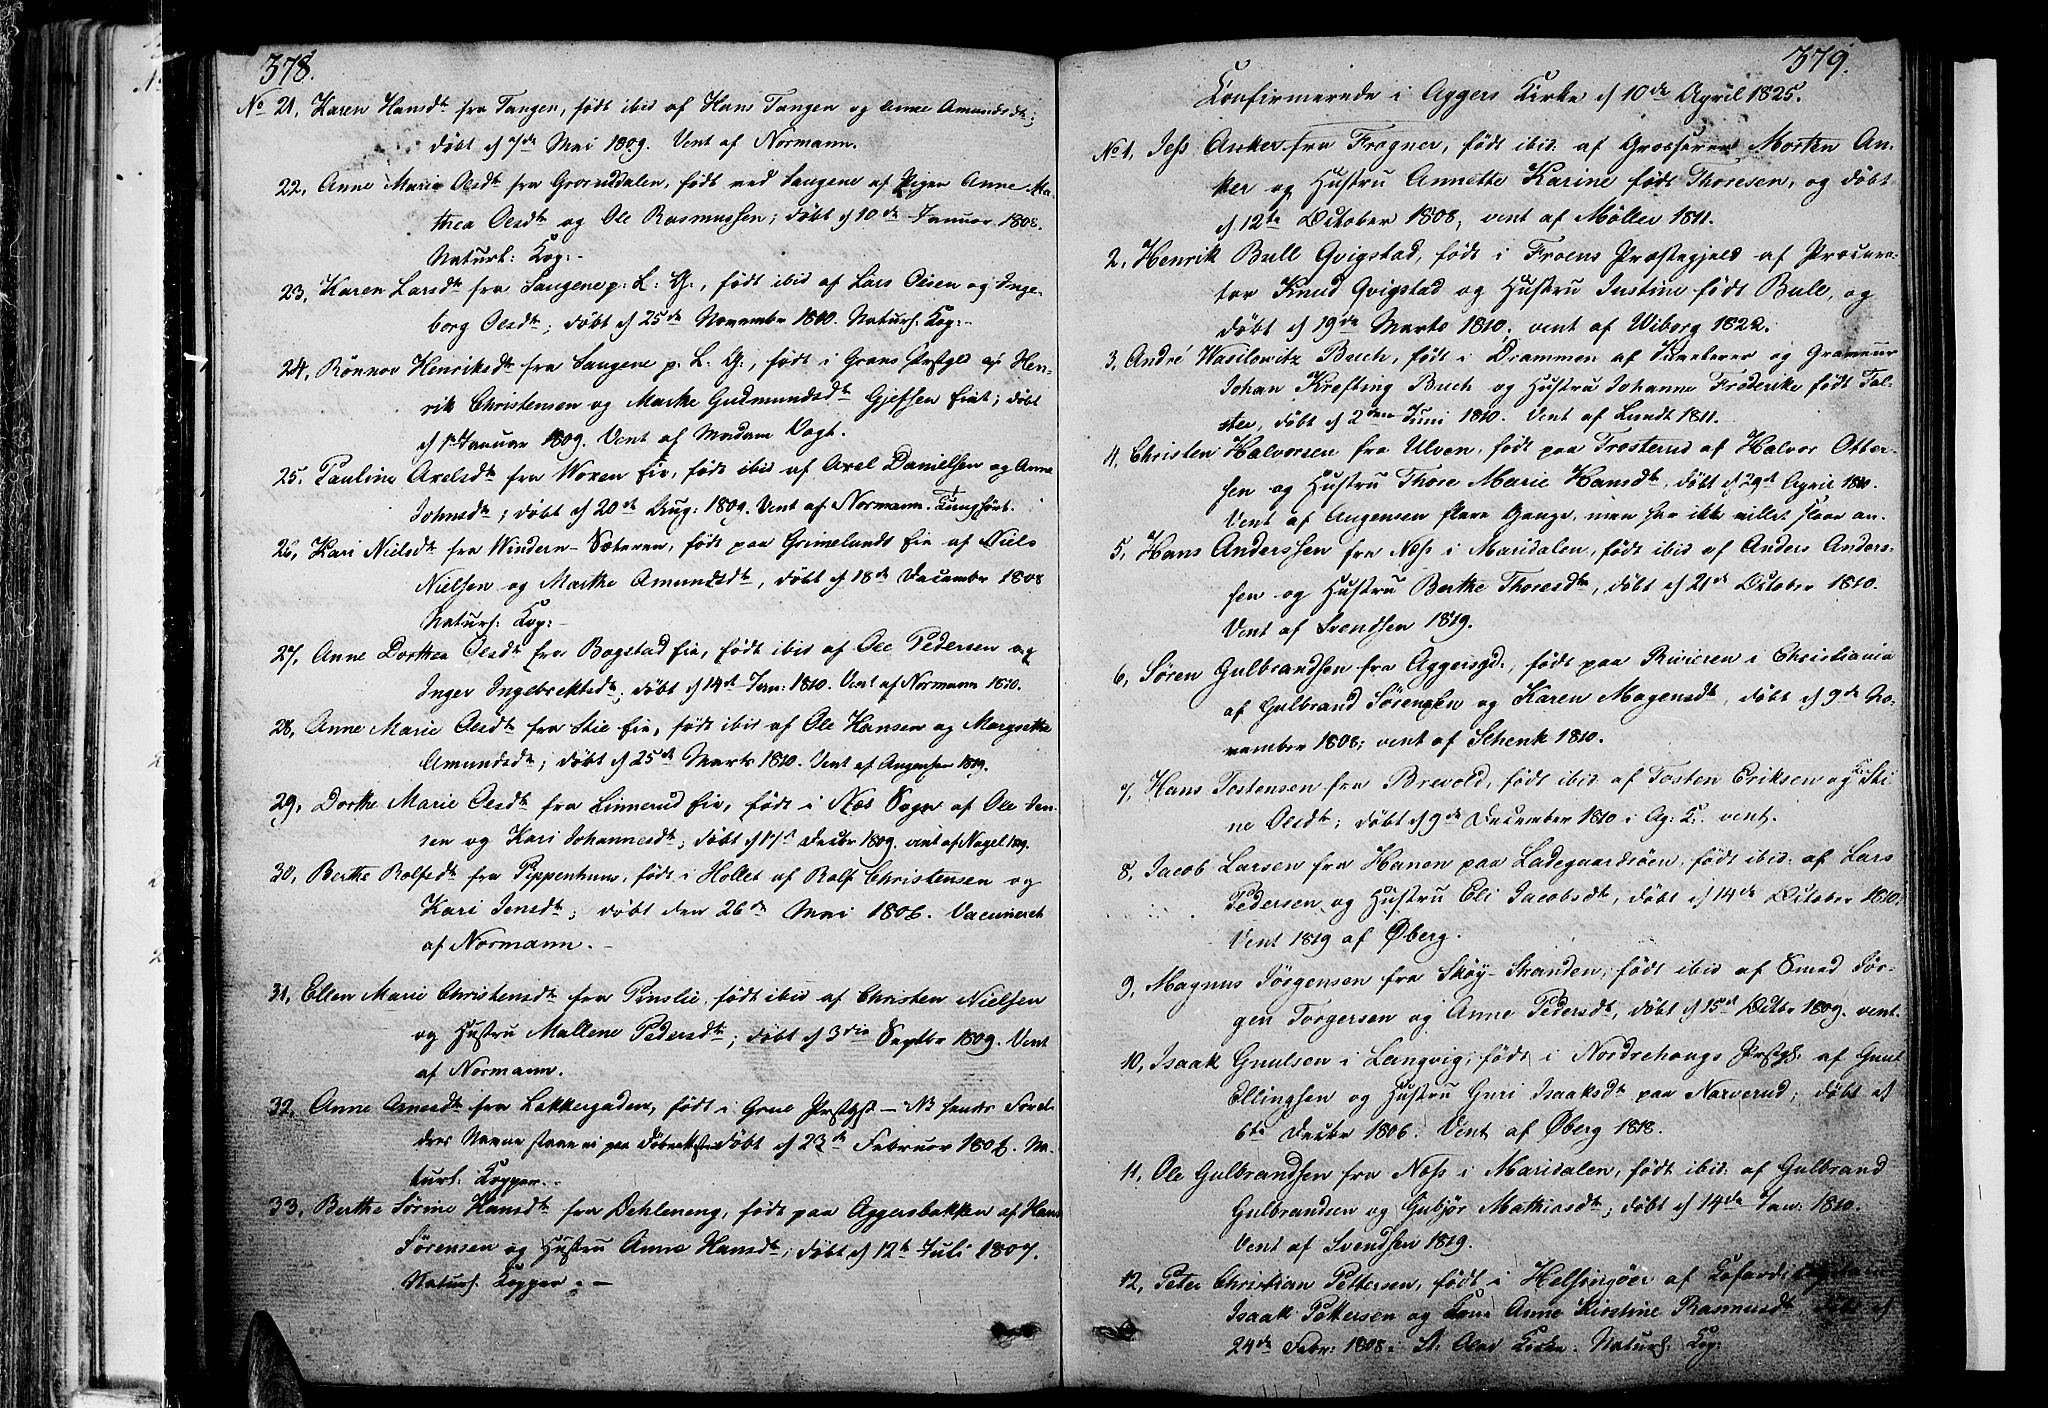 378.
No 21, Karen Hansdt fra Tangen, født ibid af Hans Tangen og Anne Amundsdt;
døbt d 7de Mai 1809. Vent af Normann.
22, Anne Marie Olsdt fra Groruddalen, født ved Saugene af Pigen Anne Ma-
threa Olsdt og Ole Rasmussen; døbt d 10de Januar 1808.
Naturl: Kop:-
23, Karen Larsdt fra Saugene p. L. G., født ibid af Lars Olsen og Inge-
borg Olsdt; døbt d 25de November 1810. Naturl: Kop:-
24, Rønnov Henriksdt fra Saugene p. L. G., født i Grans Prstgld af Hen-
rik Christensen og Marthe Gudmundsdt Gjefsen Eiet; døbt
d 1st Januar 1809. Vent af Madam Vogt.
25, Pauline Axelsdt fra Woxen Eie, født ibid af Axel Danielsen og Anne
Johnsdt; døbt d 20de Aug: 1809. Vent af Normann. Tunghört.
26, Kari Nielsdt fra Windern-Sæteren, født paa Grimelunds Eie af Niels
Nielsen og Marthe Amundsdt, døbt d 18de December 1808
Naturl: Kop:-
27, Anne Dorthea Olsdt fra Bogstad Eie, født ibid af Ole Pedersen og
Inger Ingebrektsdt; døbt d 14de Jan: 1810. Vent af Normann 1810.
28, Anne Marie Olsdt fra Stie Eie, født ibid af Ole Hansen og Margrethe
Amundsdt; døbt d 25de Marts 1810. Vent af Augensen 1819.
29, Dorthe Marie Olsdt fra Linnerud Eie, født i Næs Sogn af Ole Jen-
sen og Kari Johannesdt; døbt d Decbr 1809. vent af Nagel 1819.
30, Berthe Rolfsdt fra Pippenhuus, født i Hollet af Rolf Christensen og
Kari Jensdt; døbt den 26de Mai 1806. Vaccineret
af Normann. -
31, Ellen Marie Christensdt fra Pinslie, født ibid af Christen Nielsen
og Hustru Mallene Pedersdt; døbt d 3die Septbr 1809. Vent
af Normann.
32, Anne fra Lakkergaden, født i Grue Prstgld - NB hendes Forel-
dres Navne staae ei paa døbt d 23de Februar 1806. Na-
turl: Kopper.-
33, Berthe Sørine Hansdt fra Dehleneng, født paa Aggersbakken af Hans
Sørensen og Hustru Anne Hansdt, døbt d 12te Juli 1807.
Naturl: Kopper. -
379.
Confirmerede i Aggers Kirke d 10de April 1825.
No 1, Jess Anker fra Frogner, født ibid. af Grosserer Morten An-
ker og Hustru Annette Karine født Thoresen, og døbt
d 12te October 1808, vent af Møller 1811.
2, Henrik Bull Qvigstad, født i Froens Præstegjeld af Procura-
tor Knud Qvigstad og Hustru Justine født Bull, og
døbt d 19de Marts 1810. vent af Wiborg 1822.
3, André Wasilowitz Buch, født i Drammen af Juveleer og Graveur
Johan Krefting Buch og Hustru Johanne Frederike født Tol-
ster, døbt d 2den Juni 1810. Vent af Lundt 1811.
4, Christen Halvorsen fra Ulven, født paa Trosterud af Halvor Otter-
sen og Hustru Thore Marie Hansdt, døbt d 29de April 1810.
Vent af Augensen flere Gange, men har ikke villet slaae an.
5, Hans Anderssen fra Næss i Maridalen, født ibid af Anders Anders-
sen og Hustru Berthe Thoresdt, døbt d 21de October 1810.
Vent af Svendsen 1819.
6, Søren Gulbrandsen fra Aggersgd., født paa Rivieren i Christiania
af Gulbrand Sørensen og Karen Mogensdt, døbt d 9de No-
vember 1808; vent af Schenk 1810.
7, Hans Tostensen fra Brevold, født ibid af Tosten Eriksen og Sti-
ne Olsdt; døbt d 9de December 1810 i Ag: K. vent.
8, Jacob Larsen fra Hanen paa Ladegaardsöen, født ibid: af Lars
Pedersen og Hustru Eli Jacobsdt, døbt d 14de October 1810.
Vent 1819 af Øberg.
9, Magnus Jørgensen fra Skøy-Stranden, født ibid af Smed Jør-
gen Torgersen og Anne Pedersdt, døbt d 15de Octbr 1809. vent.
10, Isaak Gnulsen i Langvig, født i Nordrehougs Prstgld. af Gnul
Ellingsen og Hustru Guri Isaaksdt paa Narverud; døbt d
6te Decbr 1806. Vent af Øberg 1818.
11, Ole Gulbrandsen fra Næss i Maridalen, født ibid: af Gulbrand
Gulbrandsen og Gubjør Mathiasdt; døbt d 14de Jan: 1810.
Vent af Svendsen 1819.
12, Peter Christian Pettersen, født i Helsingøer af
Isaak Pettersen og Kone Anne Kirstine Rasmusdt, døbt d
24de Febr: 1808 i St: Olai Kirke. Naturl: Kop: